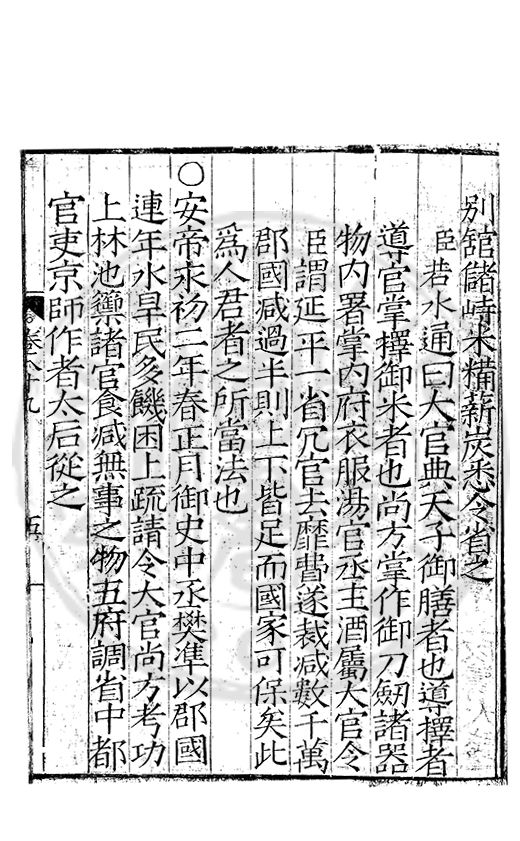 別館儲峙米糒薪炭悉令省之
臣若水通曰大官典天子御膳者也導擇者
導官掌擇御米者也尚方掌作御刀劒諸器
物内署掌内府衣服湯官丞主酒屬大官令
臣謂延平一省冗官去靡費遂裁减數千萬
郡國减過半則上下皆足而國家可保矣此
爲人君者之所當法也
○安帝永初二年春正月御史中丞樊準以郡國
連年水旱民多饑困上疏請令大官尚方考功
上林池籞諸官食减無事之物五府調省中都
官吏京師作者太后從之
卷八十九
五